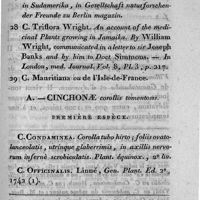 in Sudamerika, in Gesellschaft naturforschen-
der Freunde zu Berlin magazin.
28 C. Triflora Wright. An account of the medi-
cinal Plants growing in Jamaika. By William
Wright, communicated in a letter to sir Joseph
Banks and by him to Doct Simmons. — In
London, med. Journal. Vol. 8, Pl. 3, p. 217.
29 C. Mauritiana ou de l'Isle-de-France.
A. — CINCHONÆ corollis tomentosis.
PREMIÈRE ESPÈCE.
C. CONDAMINEA. Corolla tubo hirto; foliis ovato-
lanceolatis, utrinque glaberrimis, in axillis nervo-
rum infernè scrobiculatis. Plant. équinox., 2e liv.
C. OFFICINALIS. Linné, Gen. Plant. Ed. 2a.
1742 (1).